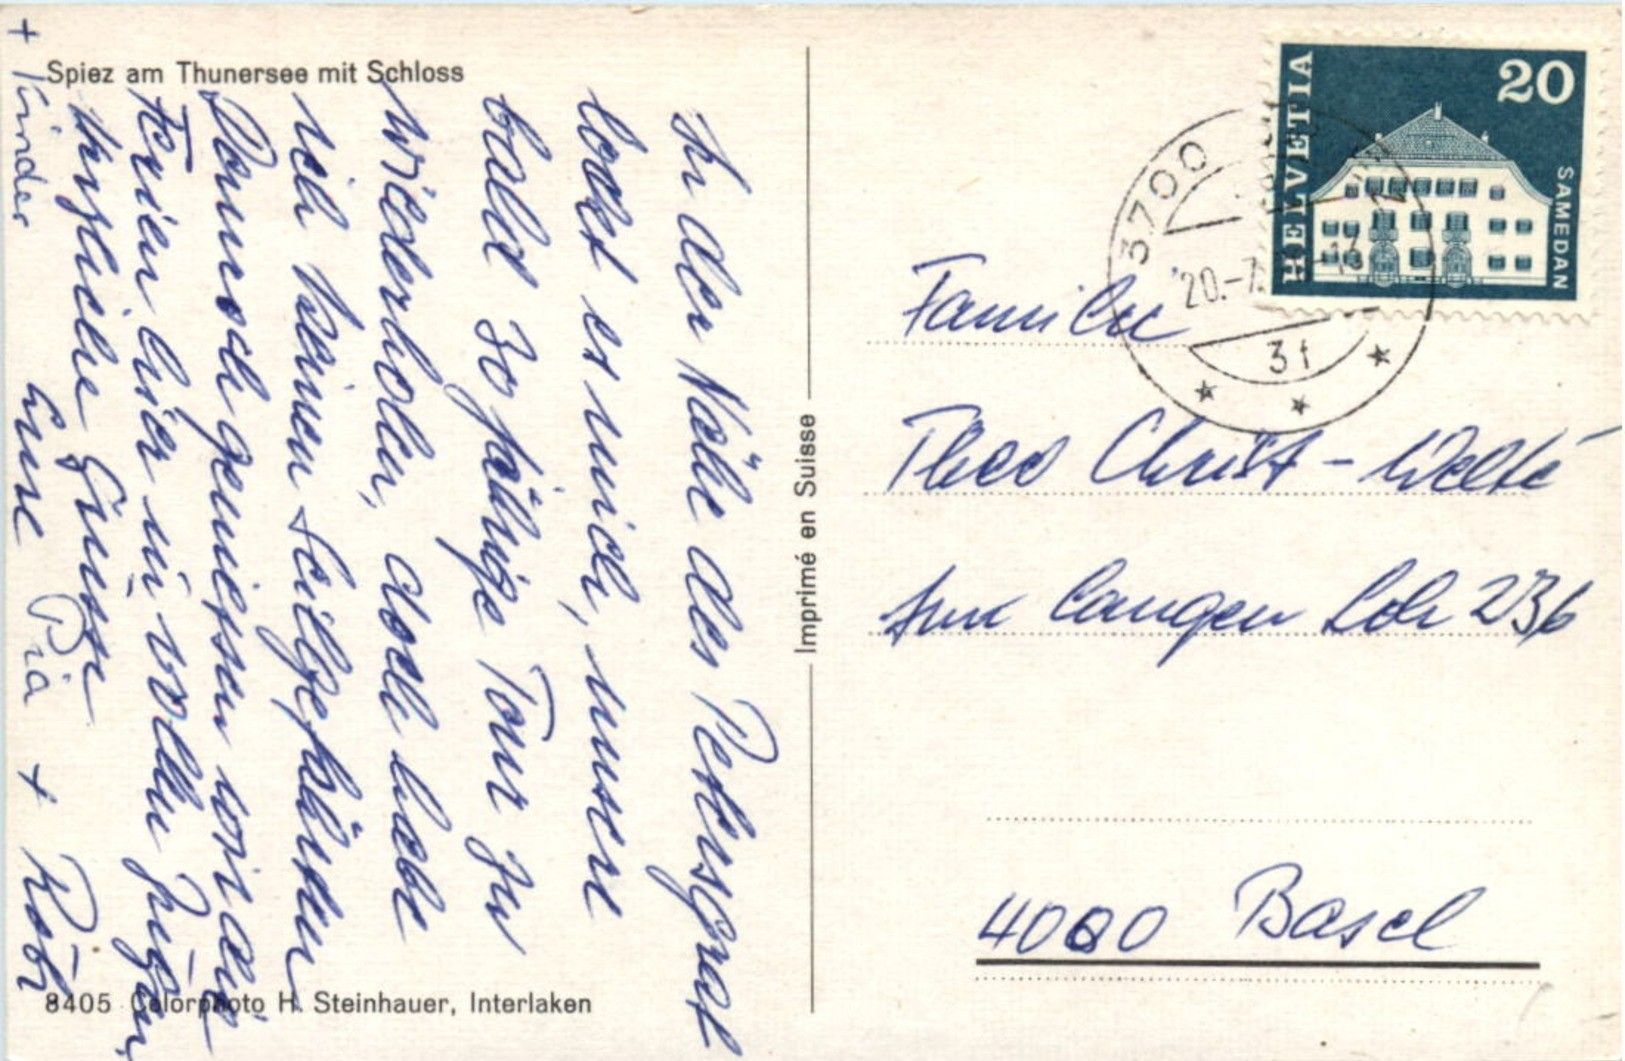 Spiez am Thunersee mit Schloss
In der Nähe des Petersgrat
lockt es mich, unsere
bald 30 jährige Tour zu
wiederholen, doch habe
ich keinen Seilgefährten
Dennoch geniessen wir die
Ferien hier in vollen Zügen
Herzliche Grüsse
Eure Pia + Röbi
+ Kinder
8405 Colorphoto H. Steinhauer, Interlaken
Imprimé en Suisse
HELVETIA
20
SAMEDAN
3700
20.-7.
-13
3f
Familie
Theo Christ - Welté
Im langen Loh 236
4000 Basel